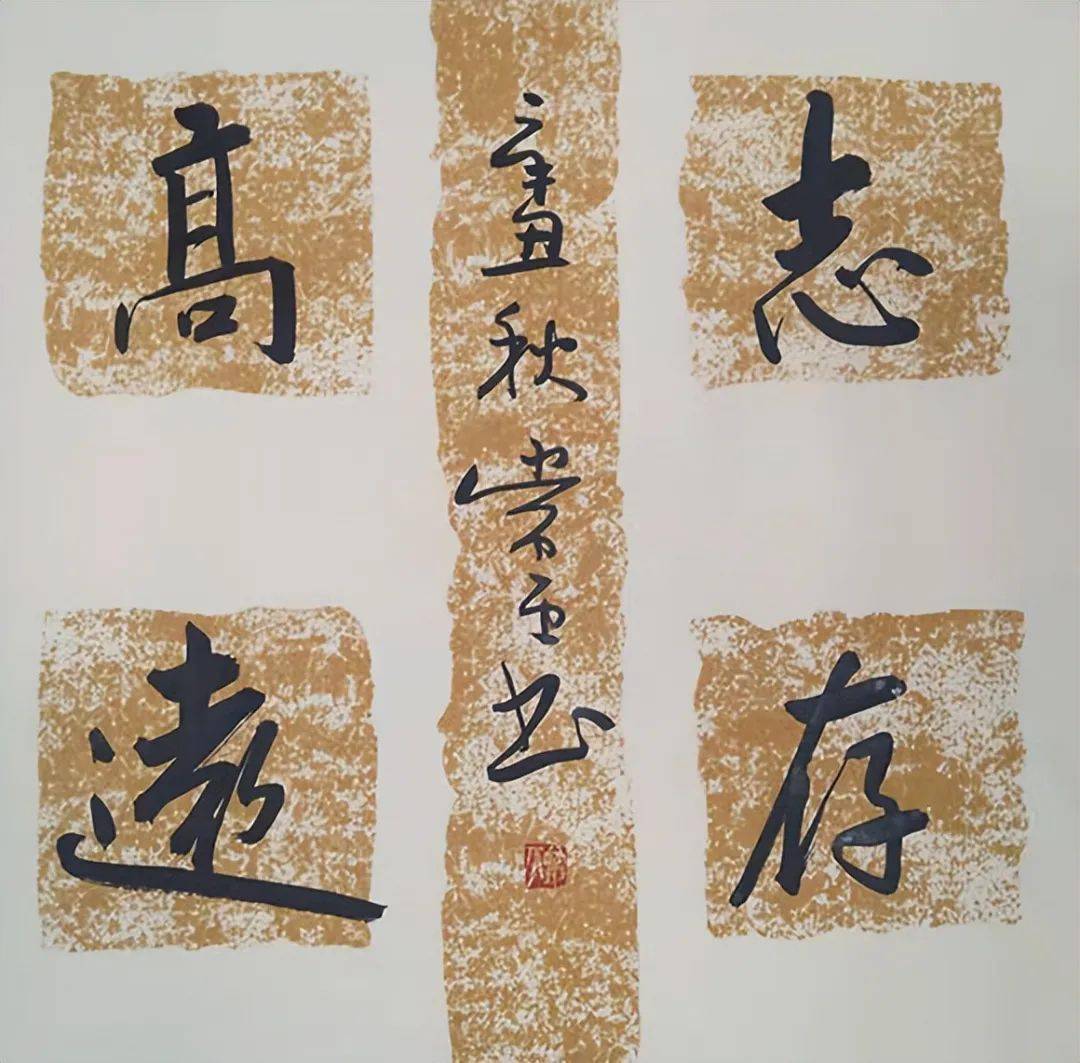 志存
高遠
辛丑秋常书